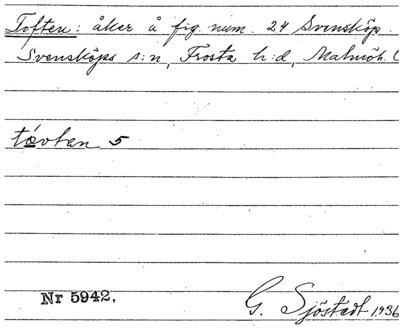 Toften: åker å fig. num. 24 Svensköp.
Svensköps s:n, Frosta h:d, Malmöh.
tövten 5
Nr 5942.
G. Sjöstedt 1936